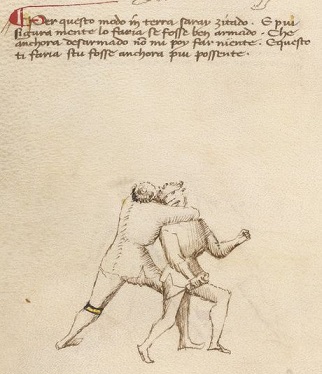 Per questo modo in terra saray zitado. E piui
sigura mente lo faria se fosse ben armado. Che
anchora desarmado no mi poy far niente. E questo
ti faria stu fosse anchora piu possente.